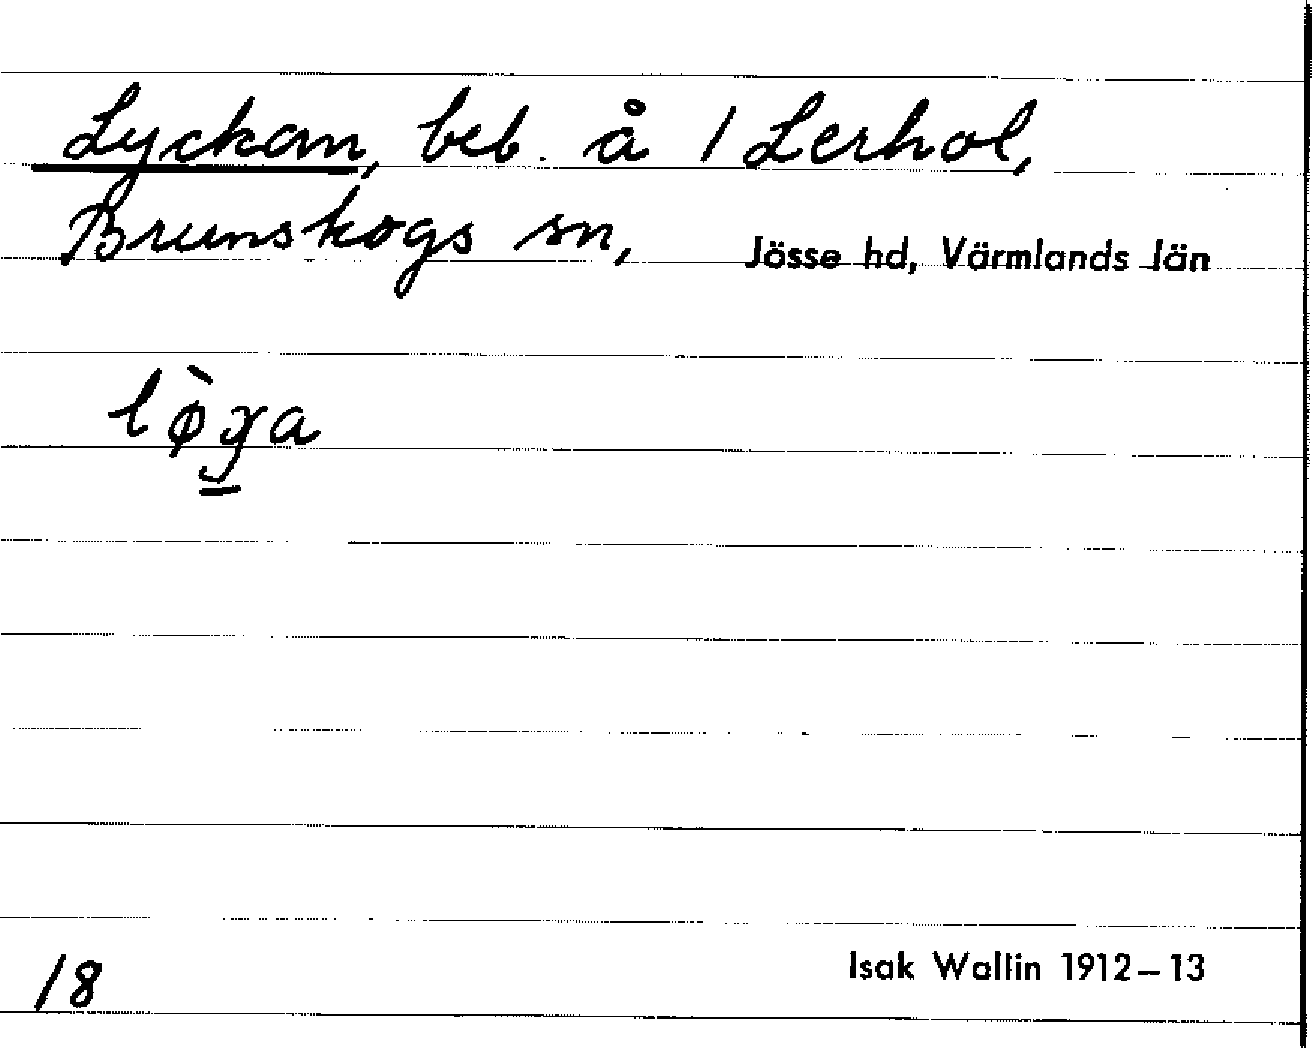 Lyckan, beb. å 1 Lerhol,
Brunskogs sn, Jösse hd, Värmlands län
lø̀ɡ̠a
18
Isak Wallin 1912–13